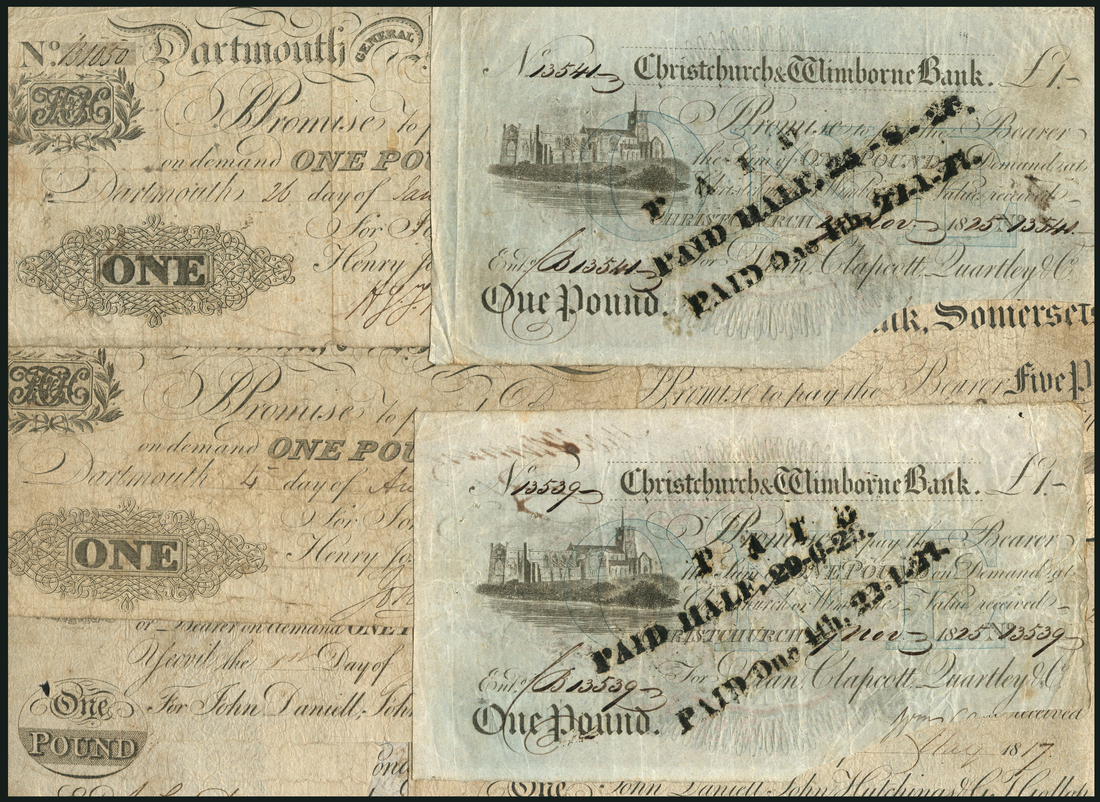 No. 131050 Dartmouth GENERAL
ONE
Promise to p
on demand ONE POU
Dartmouth 26 day of Jan
For Fo
Henry Jo
ONE
No 13541 Christchurch & Wimborne Bank. £1-
Promise to Bearer
the Sum of ONE POUND on Demand at
Value received
CHRISTCHURCH Nov 1825 No 13541
Entd. 13541 For Clapcott, Quartley & Co.
One Pound.
PAID
PAID HALF,
PAID One 4th,
nk, Somerset
Promise to pay the Bearer Five P
Promise to p
on demand ONE POU
Dartmouth 4th day of Au
For Fo
Henry Jo
ONE
No 13539 Christchurch & Wimborne Bank. £1-
ONE
Promise pay the Bearer
the Sum ONE POUND on Demand at
Christchurch or Wimborne Value received
CHRISTCHURCH 9 Nov 1825 No 13539
Entd. 13539 For Clapcott, Quartley & Co.
One Pound.
PAID
PAID HALF,
PAID One 4th, 22.1.27.
or Bearer on demand ONE P
Yeovil, the Day of
For John Daniell, John
One
POUND
received
May 1817
One John Daniell, John Hutchings & G